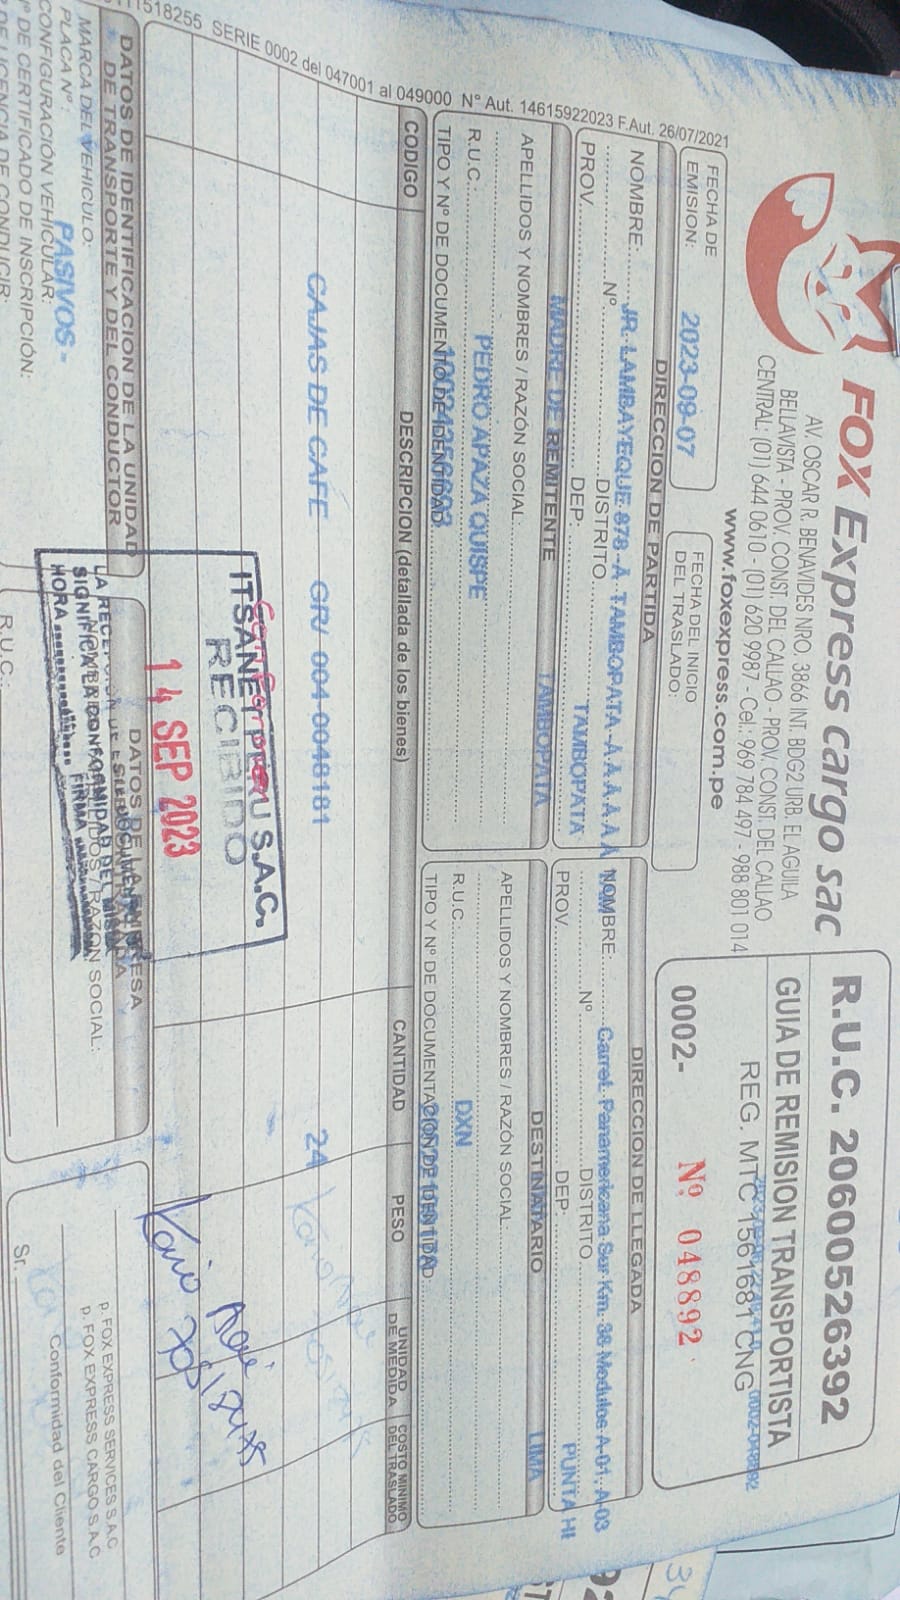 518255 SERIE 0002 del 047001 al 049000 N° Aut. 14615922023 F.Aut. 26/07/2021
FOX Express cargo sac
AV. OSCAR R. BENAVIDES NRO. 3866 INT. BDG2 URB. EL AGUILA
BELLAVISTA - PROV. CONST. DEL CALLAO - PROV. CONST. DEL CALLAO
CENTRAL: (01) 644 0610 - (01) 620 9987 - Cel: 969 784 497 - 988 801 014
www.foxexpress.com.pe
R.U.C. 20600526392
GUIA DE REMISION TRANSPORTISTA
REG. MTC 1561681 CNG
0002- Nº 048892
FECHA DE EMISION: 2023-09-07
FECHA DEL INICIO DEL TRASLADO:
DIRECCION DE PARTIDA
NOMBRE: JR. LAMBAYEQUE 878-A TAMBOPATA -A A A A A
Nº DISTRITO TAMBOPATA
PROV. MADRE DE DEP. TAMBOPATA
DIRECCION DE LLEGADA
NOMBRE: Carret. Panamericana Sur Km. 38 Modulos A-01. A-03
Nº DISTRITO PUNTA HI
PROV. DEP. LIMA
REMITENTE
APELLIDOS Y NOMBRES / RAZÓN SOCIAL:
PEDRO APAZA QUISPE
R.U.C.
TIPO Y Nº DE DOCUMENTO DE IDENTIDAD
DESTINATARIO
APELLIDOS Y NOMBRES / RAZÓN SOCIAL
DXN
R.U.C.
TIPO Y Nº DE DOCUMENTACION DE IDENTIDAD
CODIGO DESCRIPCION (detallada de los bienes) CANTIDAD PESO UNIDAD DE MEDIDA COSTO MINIMO DEL TRASLADO
CAJAS DE CAFE GR/ 004-0048181 24
ITSANET PERU S.A.C.
RECIBIDO
14 SEP 2023
LA RECEPCION DE ESTE DOCUMENTO
SIGNIFICA LA CONFORMIDAD DEL MISMO
HORA FIRMA
DATOS DE IDENTIFICACION DE LA UNIDAD
DE TRANSPORTE Y DEL CONDUCTOR
MARCA DEL VEHICULO:
PLACA Nº: PASIVOS -
CONFIGURACIÓN VEHICULAR:
Nº DE CERTIFICADO DE INSCRIPCIÓN:
DE LICENCIA DE CONDUCIR:
R.U.C.:
p. FOX EXPRESS SERVICES S.A.C
p. FOX EXPRESS CARGO S.A.C
Conformidad del Cliente
Sr.